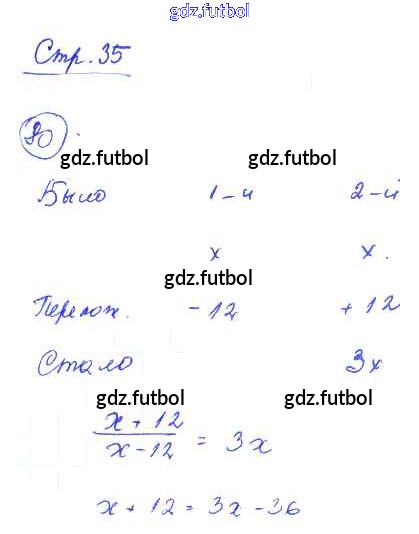 gdz.futbol
Стр. 35
80.
gdz.futbol gdz.futbol
Было 1-й 2-й
x x.
gdz.futbol
Перелож. -12 +12
Стало 3x
gdz.futbol gdz.futbol
x + 12
x - 12 = 3x
x + 12 = 3x - 36